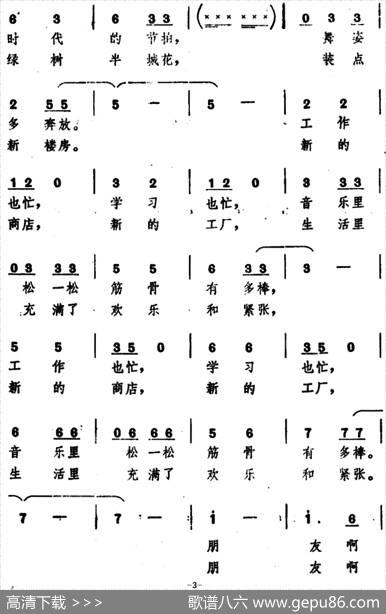 6· 3 | 6 33 | (×××× ××××) | 033
时代 的节拍， 舞姿
绿树 半城花， 装点
2 55 | 5 — | 5 — | 2 2
多奔放。 工作
新楼房。 新的
120 | 3 2 | 120 | 3 33
也忙， 学习 也忙， 音乐里
商店， 新的 工厂， 生活里
03 33 | 5 5 | 6 33 | 3 —
松一松 筋骨 有多棒，
充满了 欢乐 和紧张，
5 5 | 350 | 6 6 | 350
工作 也忙， 学习 也忙，
新的 商店， 新的 工厂，
6 66 | 06 66 | 5 6 | 7 77
音乐里 松一松 筋骨 有多棒。
生活里 充满了 欢乐 和紧张。
7 — | 7 — | i — | i· 6
朋 友啊
朋 友啊
-3-
高清下载 >>> 歌谱八六 www.gepu86.com